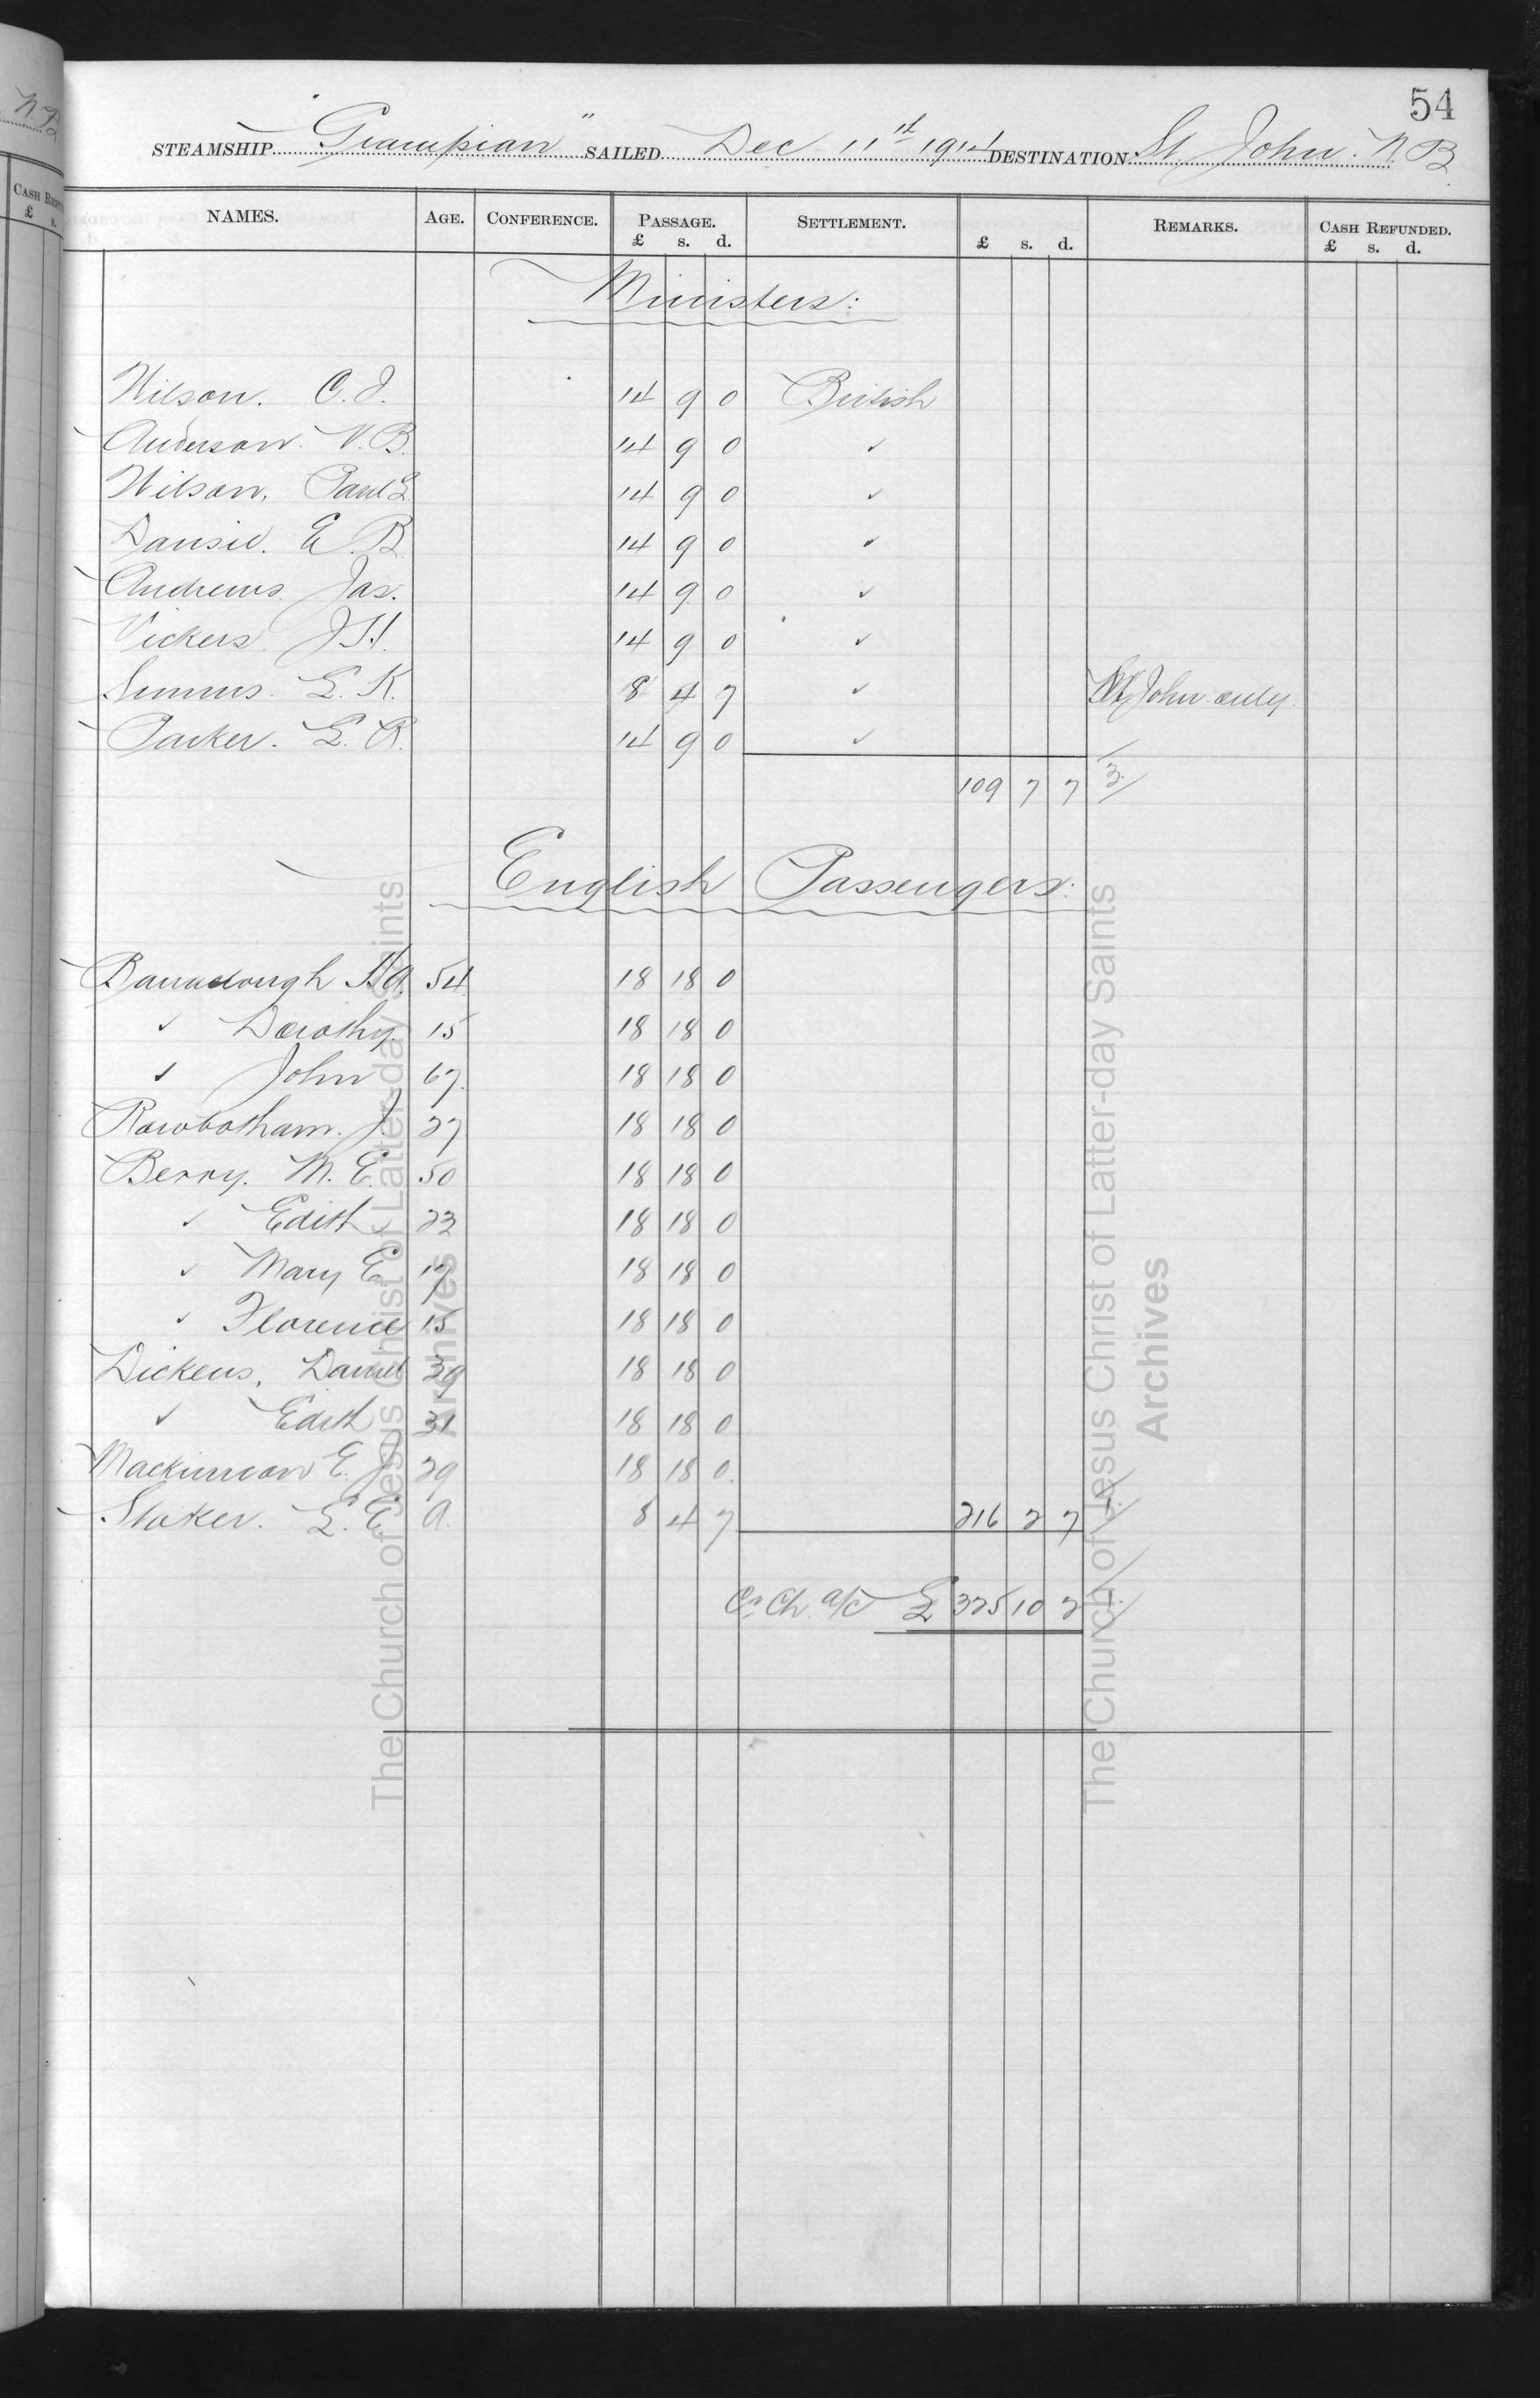 54
STEAMSHIP "Grampian" SAILED Dec 11th 1914 DESTINATION St John. N.B
NAMES. AGE. CONFERENCE. PASSAGE. £ s. d. SETTLEMENT. £ s. d. REMARKS. CASH REFUNDED. £ s. d.
Ministers:
Wilson. C.J. 14 9 0 British
Anderson. V.B. 14 9 0 ✓
Wilson, Paul L 14 9 0 ✓
Dansie. E.B. 14 9 0 ✓
Andrews Jas. 14 9 0 ✓
Vickers. J.H. 14 9 0 ✓
8 4 7 ✓ St John only.
Parker. L.R. 14 9 0 ✓
109 7 7 3/
English Passengers:
Barraclough 54 18 18 0
✓ Dorothy. 15 18 18 0
✓ John 67. 18 18 0
Rowbotham. J 27 18 18 0
Berry. M.E. 50 18 18 0
✓ Edith 23 18 18 0
✓ Mary E 17 18 18 0
✓ Florence 15 18 18 0
Dickens, Daniel 39 18 18 0
✓ Edith 31 18 18 0
Mackinnon E.J 29 18 18 0.
Stoker. L.E. A. 8 4 7 216 2 7
Co Ch a/c £ 325 10 2
The Church of Jesus Christ of Latter-day Saints
Archives
The Church of Jesus Christ of Latter-day Saints
Archives
N.B
CASH REFU
£ s.